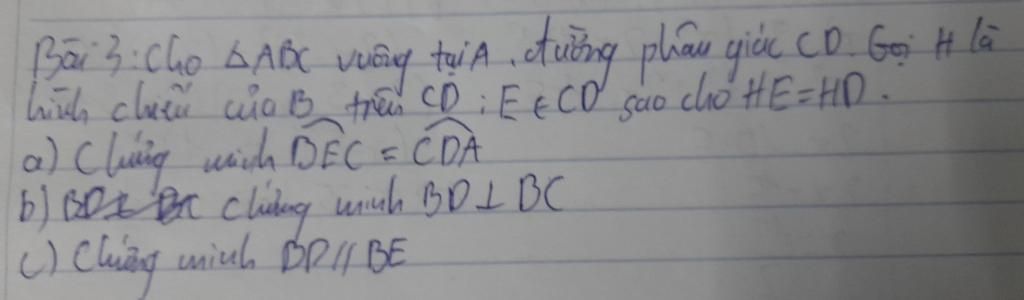 Bài 3: Cho ΔABC vuông tại A, đường phân giác CD. Gọi H là
hình chiếu của B trên CD; E ∈ CD sao cho HE = HD.
a) Chứng minh DEC = CDA
b) BD ⊥ BC chứng minh BD ⊥ BC
c) Chứng minh BD // BE